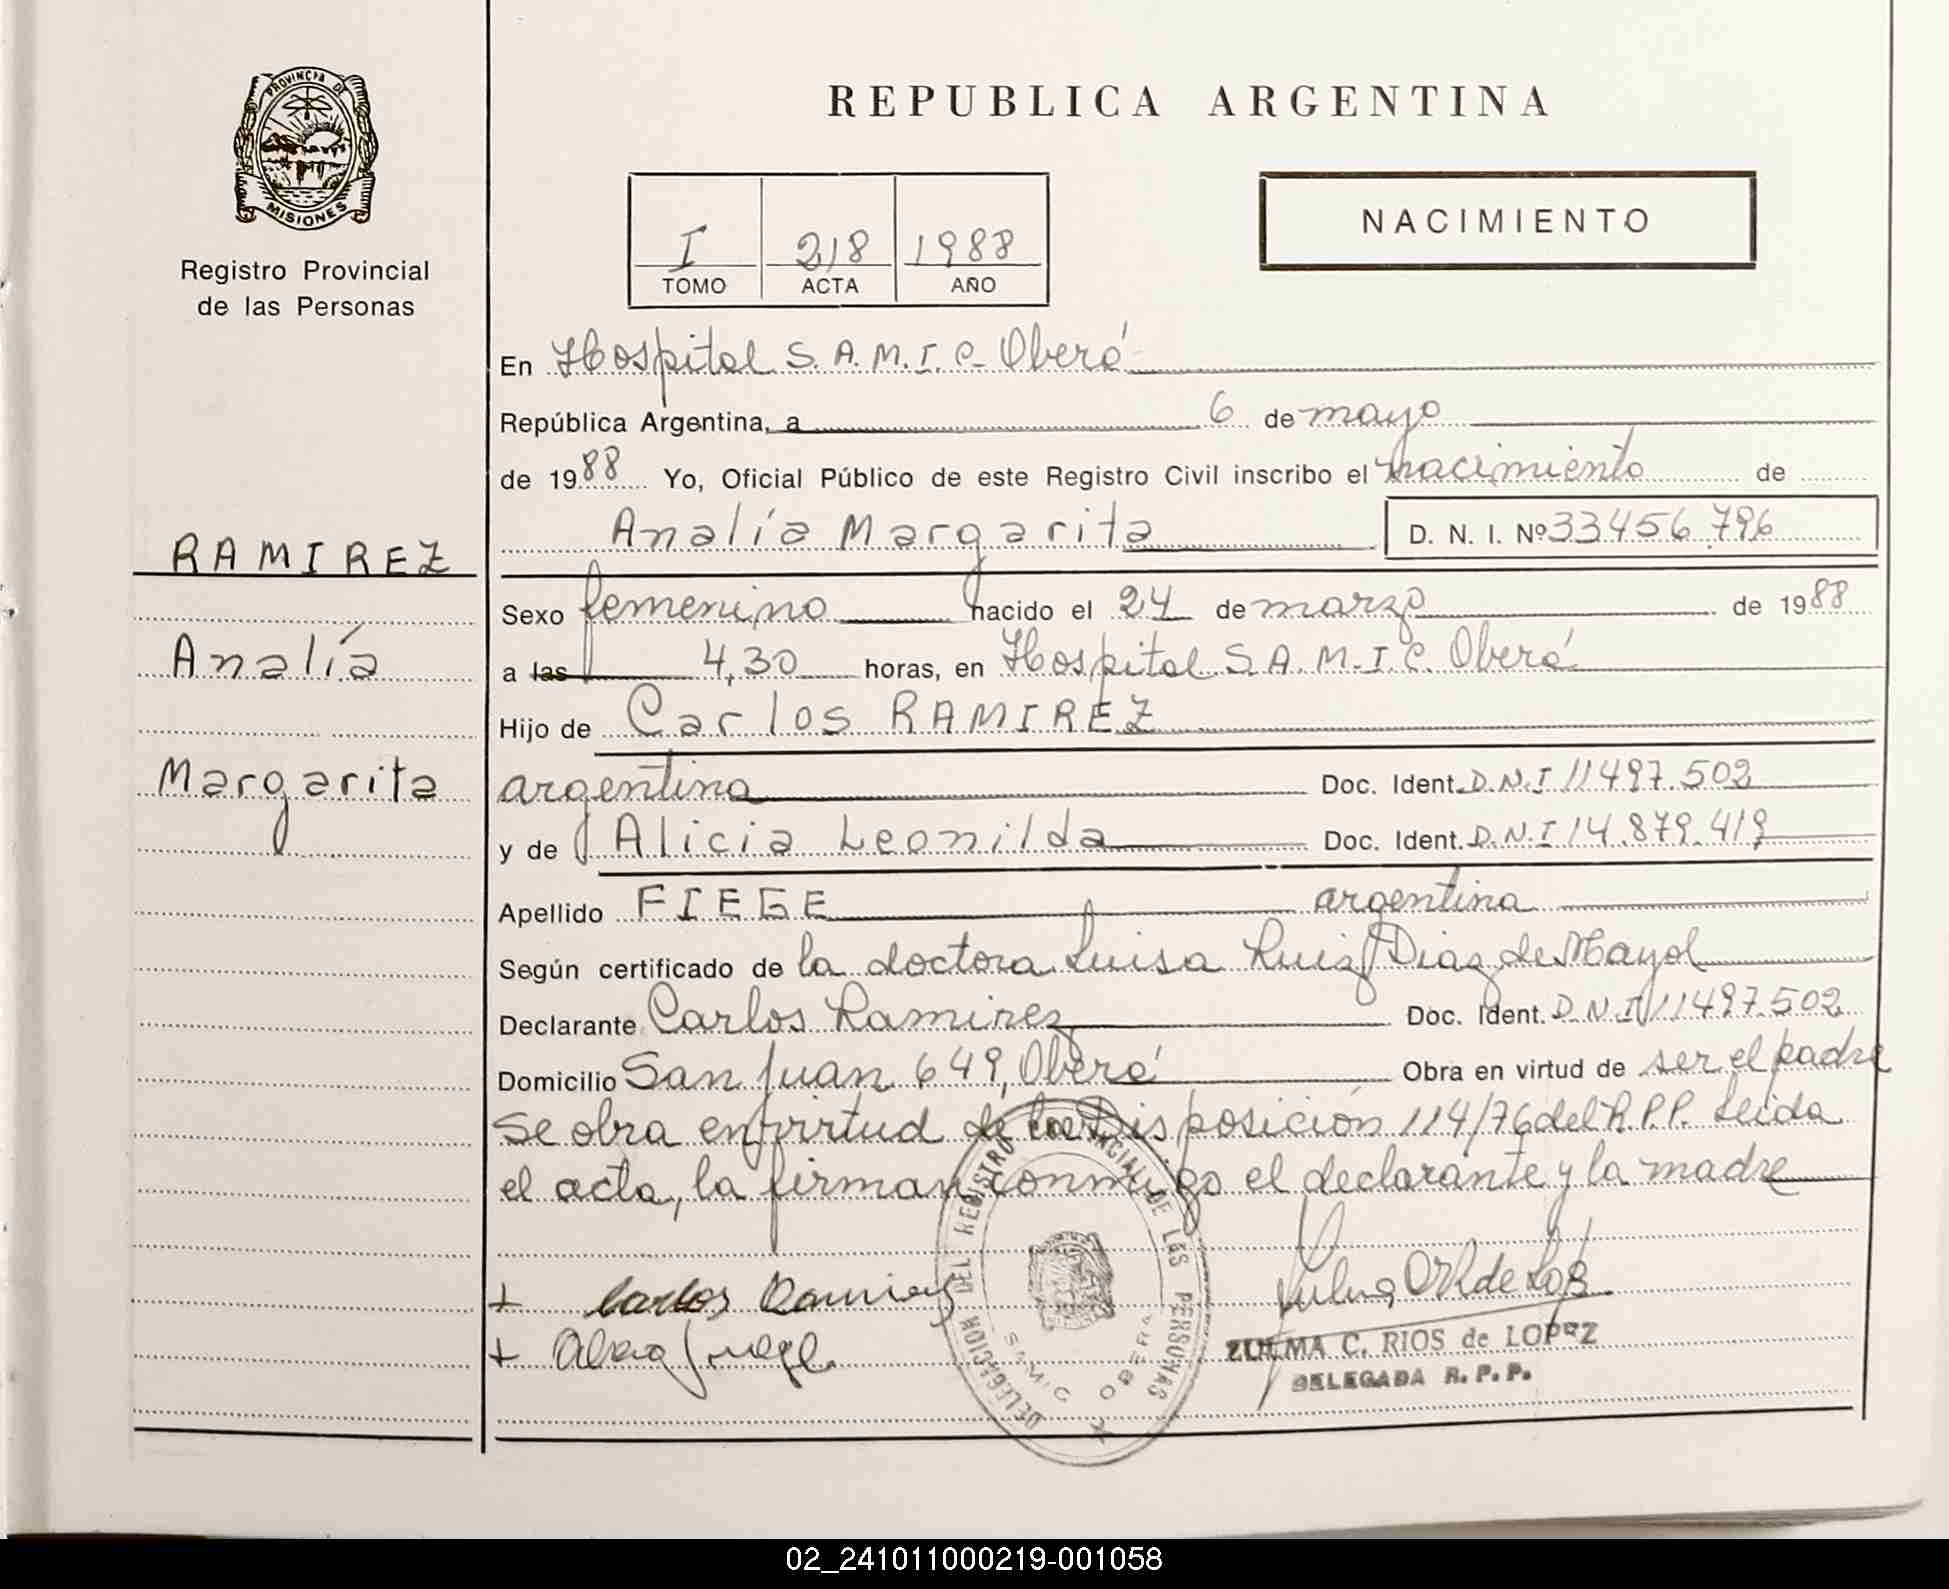 PROVINCIA DE
MISIONES
Registro Provincial
de las Personas
RAMIREZ
Analía
Margarita
REPUBLICA ARGENTINA
I 218 1988
TOMO ACTA AÑO
NACIMIENTO
En Hospital S.A.M.I.C. Oberá
República Argentina, a 6 de mayo
de 1988 Yo, Oficial Público de este Registro Civil inscribo el nacimiento de
Analía Margarita D. N. I. Nº 33456.796
Sexo femenino nacido el 24 de marzo de 1988
a las 4,30 horas, en Hospital S.A.M.I.C. Oberá
Hijo de Carlos RAMIREZ
argentina Doc. Ident. D.N.I 11497.502
y de Alicia Leonilda Doc. Ident. D.N.I 14.879.419
Apellido FIEGE argentina
Según certificado de la doctora Luisa Ruiz Diaz de Mayol
Declarante Carlos Ramirez Doc. Ident. D.N.I 11497.502
Domicilio San Juan 649, Oberá Obra en virtud de ser el padre
Se obra en virtud de la Disposición 114/76 del R.P.P. Leída
el acta, la firman conmigo el declarante y la madre
+ Carlos Ramirez
+
DELEGACION DEL REGISTRO PROVINCIAL DE LAS PERSONAS
SAMIC OBERA
ZULMA C. RIOS de LOPEZ
DELEGADA R. P. P.
02_241011000219-001058